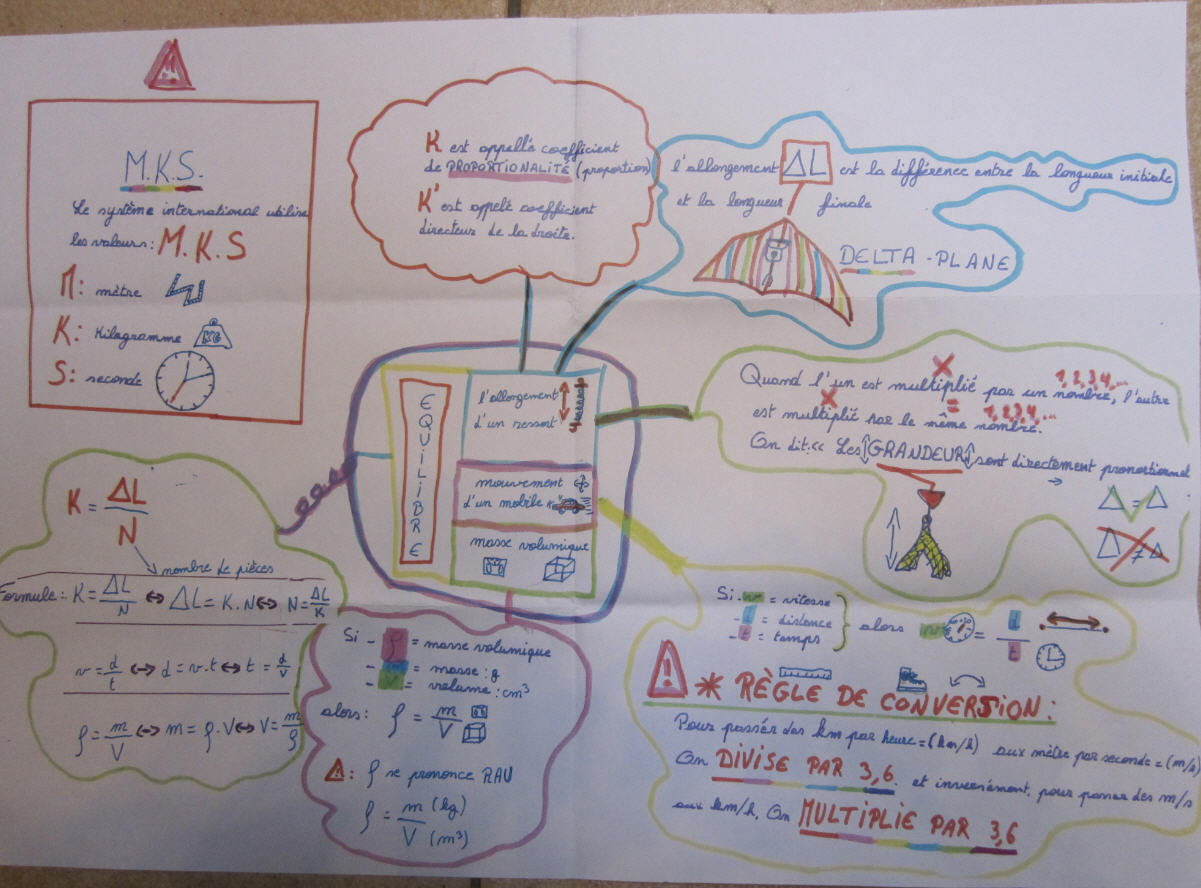 M.K.S.
Le système international utilise
les valeurs: M.K.S
M: mètre
K: Kilogramme KG
S: seconde
K est appellé coefficient
de PROPORTIONALITÉ (proportion)
K' est appelé coefficient
directeur de la droite.
l'allongement ΔL est la différence entre la longueur initiale
et la longueur finale
DELTA-PLANE
EQUILIBRE
l'allongement
d'un ressort
mouvement
d'un mobile
masse volumique
Quand l'un est multiplié par un nombre, l'autre
X 1,2,3,4,...
est multiplié par le même nombre.
X = 1,2,3,4,...
On dit:<< Les GRANDEUR sont directement proportionnel
Δ = Δ
Δ ≠ Δ
K = ΔL/N
nombre de pièces
Formule: K = ΔL/N ⇔ ΔL = K.N ⇔ N = ΔL/K
v = d/t ⇔ d = v.t ⇔ t = d/v
ρ = m/V ⇔ m = ρ.V ⇔ V = m/ρ
Si - ρ = masse volumique
- m = masse: g
- V = volume: cm³
alors: ρ = m/V
ρ se prononce RAU
ρ = m (kg)/V (m³)
Si - v = vitesse
- d = distance
- t = temps
alors v = d/t
! * RÈGLE DE CONVERSION:
Pour passér des km par heure=(km/h) aux mètre par seconde=(m/s)
On DIVISE PAR 3,6. et inversément, pour passer des m/s
aux km/h, On MULTIPLIE PAR 3,6